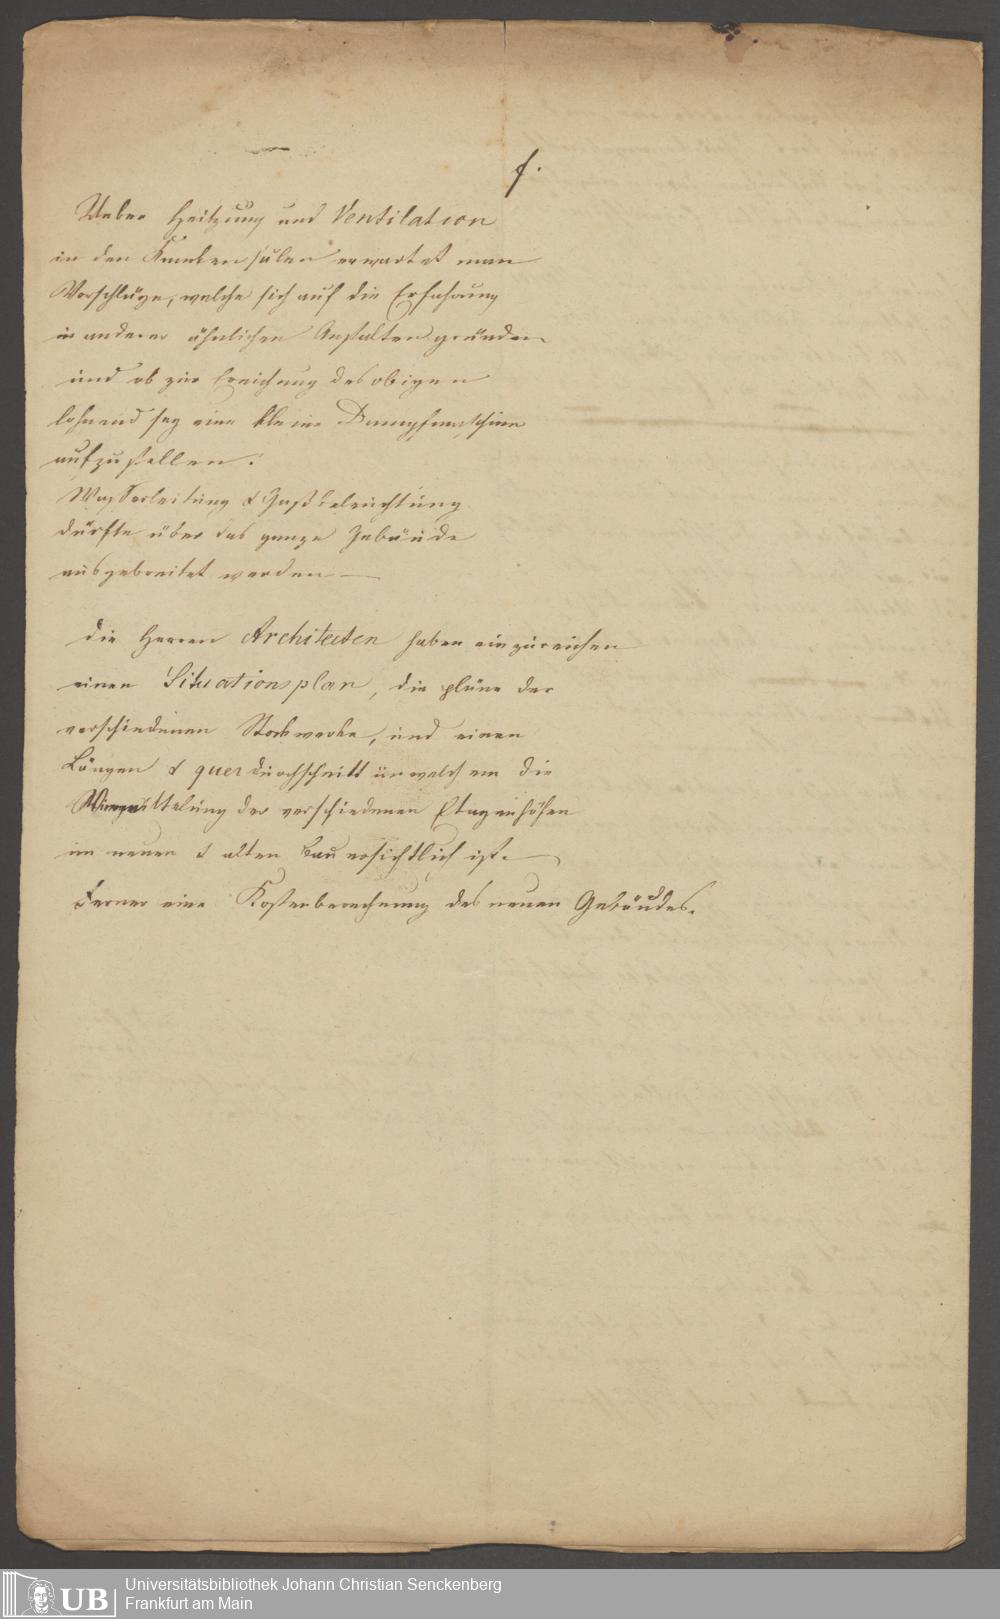 f.
Ueber Heitzung und Ventilation
in den Krankensälen erwartet man
Vorschläge, welche sich auf die Erfahrung
in anderer ähnlichen Anstalten gründen
und ob zur Ereichung des obigen
lohnend sey eine kleine Dampfmaschine
aufzustellen.
Wasserleitung & Gaßbeleuchtung
dürfte über das ganze Gebäude
ausgebreitet werden —
die Herren Architecten haben einzureichen
einen Situationsplan, die pläne der
verschiedenen Stockwerke, und einen
Längen & quer durchschnitt in welchem die
der verschiedenen Etagenhöhen
im neuen & alten Bau ersichtlich ist.
Ferner eine Kostenberechnung des neuen Gebäudes.
UB
Universitätsbibliothek Johann Christian Senckenberg
Frankfurt am Main